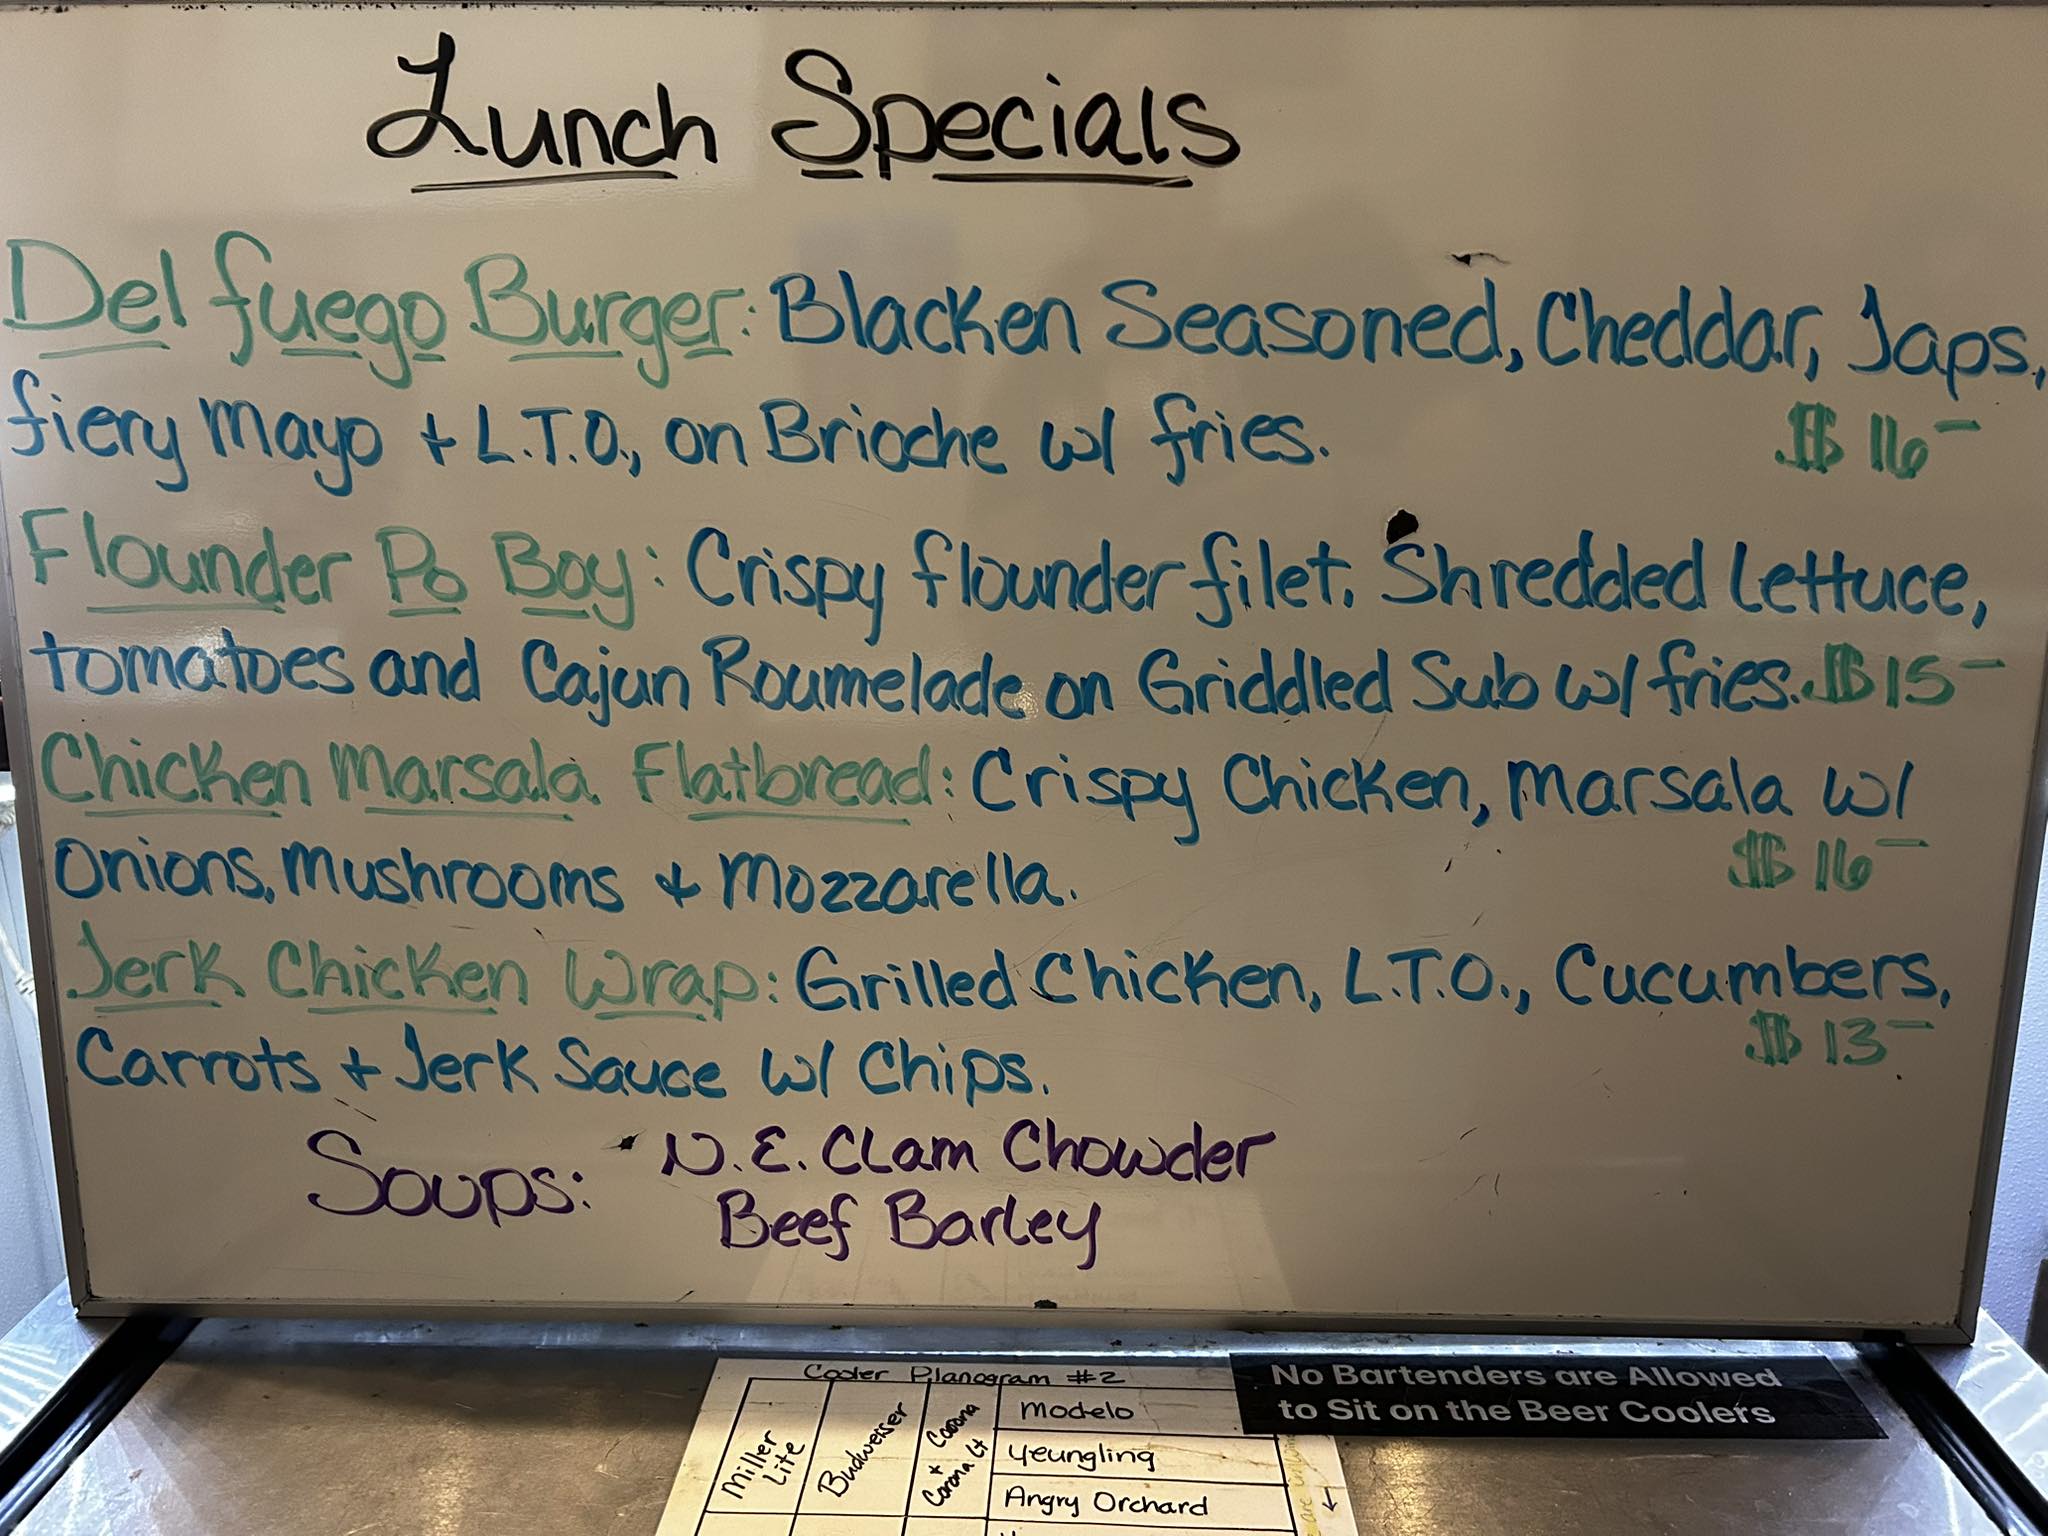 Lunch Specials
Del fuego Burger: Blacken Seasoned, Cheddar, Japs,
fiery Mayo + L.T.O., on Brioche w/ fries. $16-
Flounder Po Boy: Crispy flounder filet, Shredded lettuce,
tomatoes and Cajun Roumelade on Griddled Sub w/ fries. $15-
Chicken Marsala Flatbread: Crispy Chicken, Marsala w/
Onions, Mushrooms + Mozzarella. $16-
Jerk Chicken Wrap: Grilled Chicken, L.T.O., Cucumbers,
Carrots + Jerk Sauce w/ Chips. $13-
Soups: N.E. Clam Chowder
Beef Barley
Cooler Planogram #2
Miller Lite
Budweiser
Corona + Corona Lt
Modelo
Yeungling
Angry Orchard
No Bartenders are Allowed
to Sit on the Beer Coolers